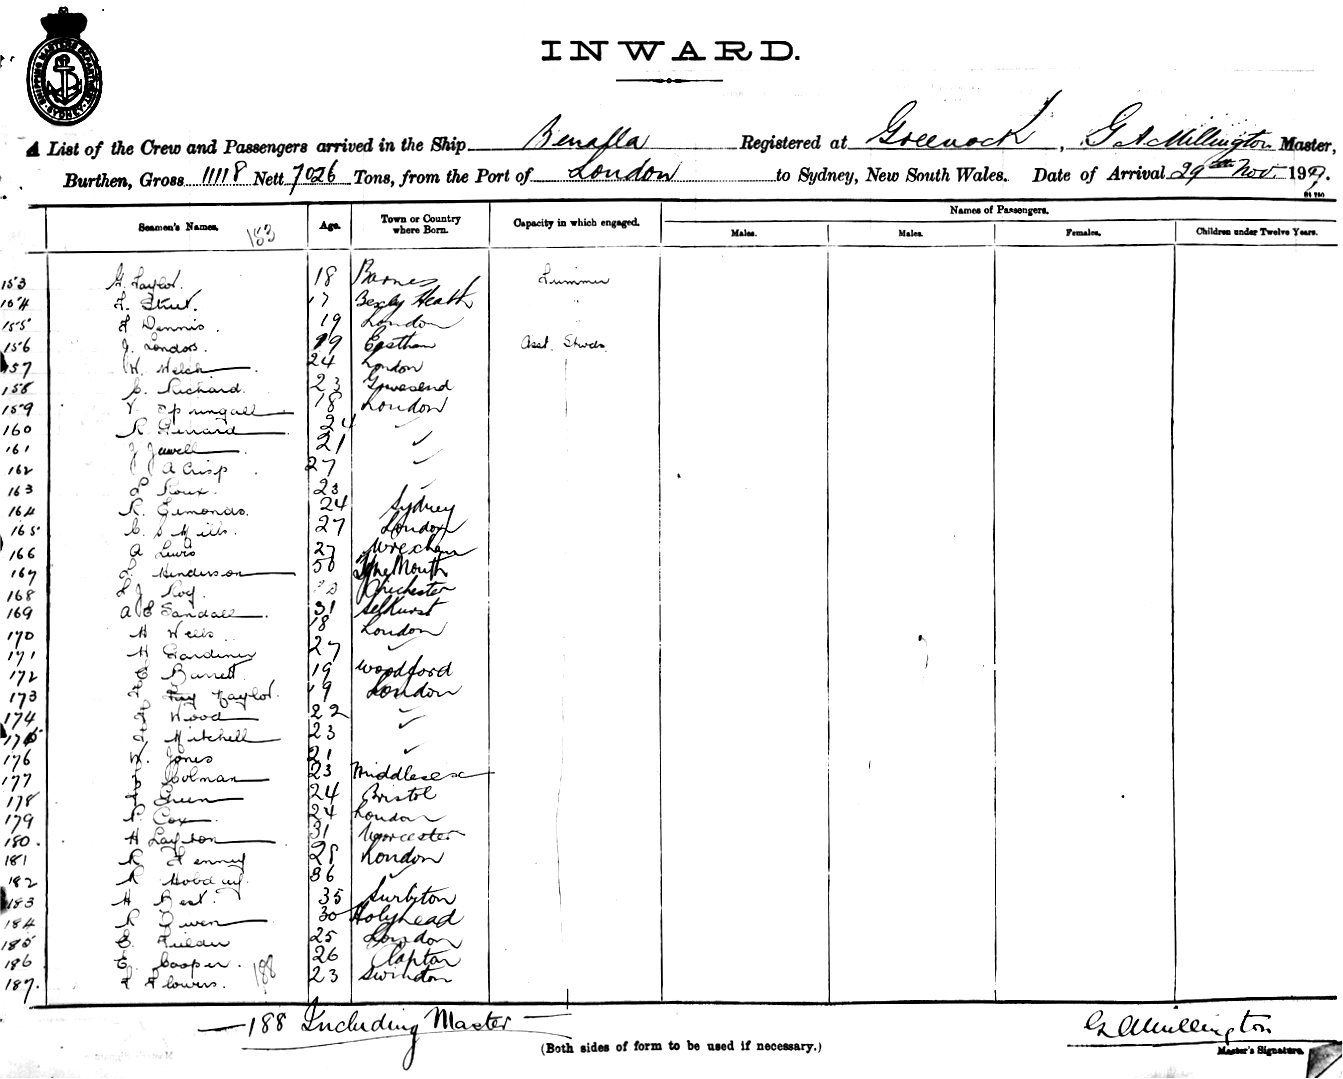 INWARD.
A List of the Crew and Passengers arrived in the Ship Benalla Registered at Greenock, G A Millington Master,
Burthen, Gross 11118 Nett 7026 Tons, from the Port of London to Sydney, New South Wales. Date of Arrival 29th Nov. 19
Seamen's Names. Age. Town or Country where Born. Capacity in which engaged. Names of Passengers.
183 Males. Males. Females. Children under Twelve Years.
153 G. Taylor. 18 Barnes Trimmer
154 F. Street. 17 Bexley Heath "
155 F Dennis. 19 London
156 J. Londos. 19 Eastham Asst. Stwds.
157 W. Welch. 24 London
158 C. Richard. 23 Gravesend
159 V. Springall 18 London
160 R 24 ✓
161 J Jewell 21 ✓
162 J A Crisp 27 ✓
163 L Roux. 23
164 R. Simonds. 24 Sydney
165 C. S Mills. 27 London
166 A Lewis 27 Wrexham
167 Henderson 50 Tynemouth
168 L J Roy. Chichester
169 A E Sandall. 31 Selhurst
170 H Wells 18 London
171 H Gardiner 27 ✓
172 Barrett. 19 Woodford
173 Taylor. 19 London
174 Wood 22 ✓
175 Mitchell 23 ✓
176 W. Jones 21 ✓
177 Colman 23 Middlesex
178 Green 24 Bristol
179 Cox 24 London
180. H Layton 31 Worcester
181 R Fenney 28 London
182 R Hobday. 36 ✓
183 H Best. 35 Surbiton
184 R Owen 30 Holyhead
185 E. Fielder 25 London
186 E. Cooper. 26 Clapton
187. F Flowers. 188 23 Swindon
188 Including Master
G A Millington
(Both sides of form to be used if necessary.)
Master's Signature.